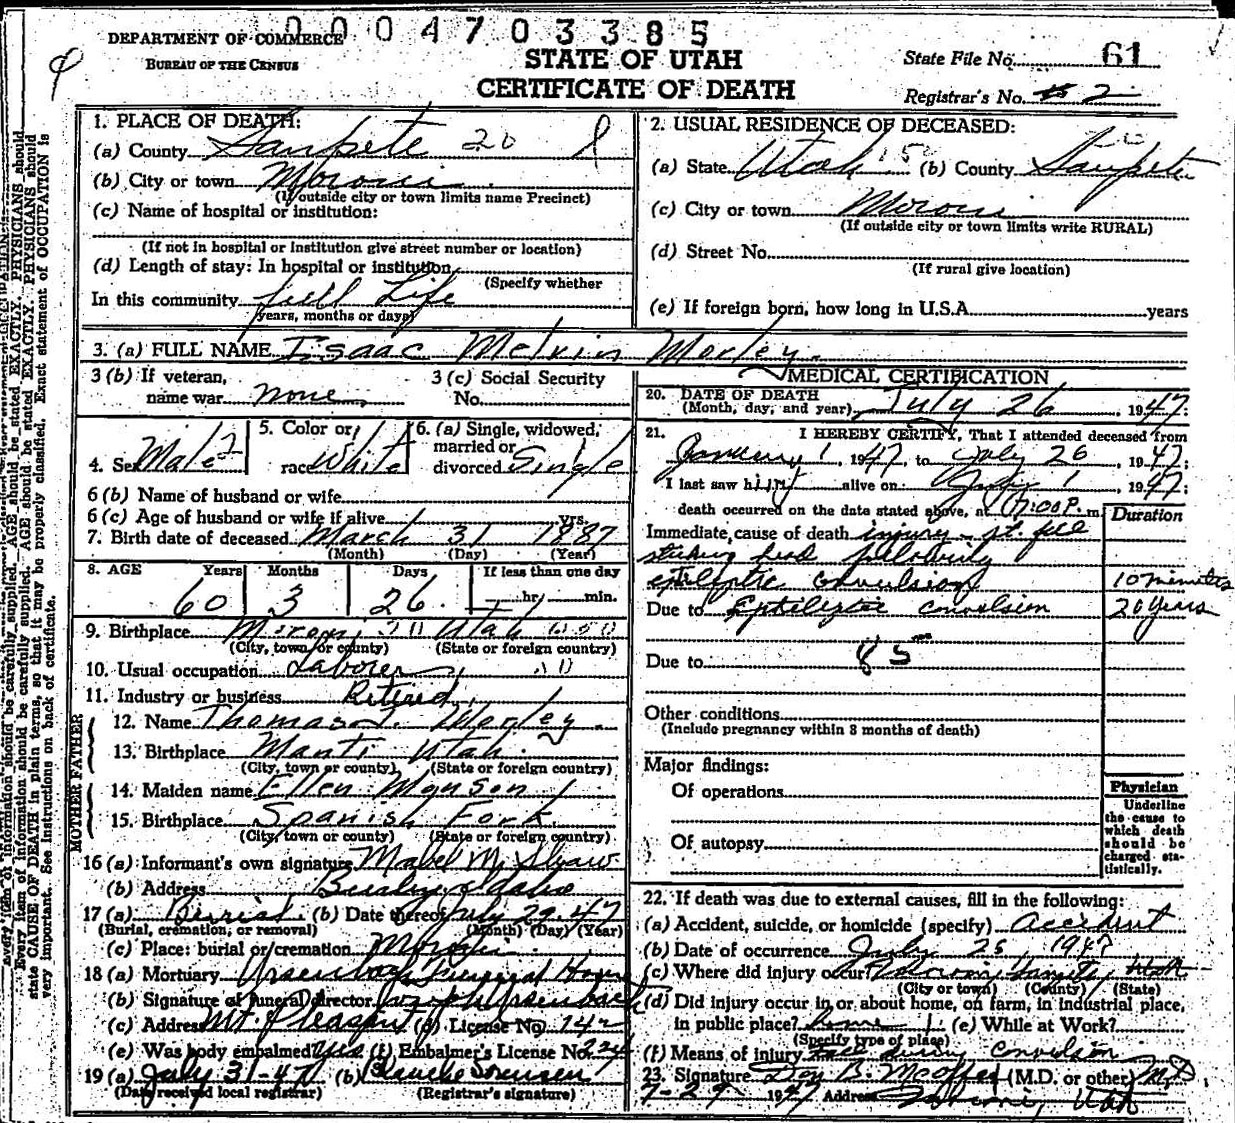 0004703385
DEPARTMENT OF COMMERCE
BUREAU OF THE CENSUS
STATE OF UTAH
CERTIFICATE OF DEATH
State File No. 61
Registrar's No. 2
1. PLACE OF DEATH:
(a) County Sanpete 20
(b) City or town Moroni
(If outside city or town limits name Precinct)
(c) Name of hospital or institution:
(If not in hospital or Institution give street number or location)
(d) Length of stay: In hospital or institution
(Specify whether
In this community full Life
years, months or days)
2. USUAL RESIDENCE OF DECEASED:
(a) State Utah (b) County Sanpete
(c) City or town Moroni
(If outside city or town limits write RURAL)
(d) Street No.
(If rural give location)
(e) If foreign born, how long in U.S.A. years
3. (a) FULL NAME Isaac Melvin Morley
3 (b) If veteran, name war none
3 (c) Social Security No.
4. Sex Male
5. Color or race White
6. (a) Single, widowed, married or divorced Single
6 (b) Name of husband or wife
6 (c) Age of husband or wife if alive yrs.
7. Birth date of deceased March 31 1887
(Month) (Day) (Year)
8. AGE Years Months Days If less than one day
60 3 26 hr. min.
9. Birthplace Moroni Utah
(City, town or county) (State or foreign country)
10. Usual occupation Laborer
11. Industry or business Retired
FATHER
12. Name Thomas J. Morley
13. Birthplace Manti Utah
(City, town or county) (State or foreign country)
MOTHER
14. Maiden name Ellen
15. Birthplace Spanish Fork
(City, town or county) (State or foreign country)
16 (a) Informant's own signature Mabel M. Shaw
(b) Address Burley, Idaho
17 (a) Burial (b) Date thereof July 29 47
(Burial, cremation, or removal) (Month) (Day) (Year)
(c) Place: burial or cremation Moroni
18 (a) Mortuary Ursenbach Funeral Home
(b) Signature of funeral director Ursenbach
(c) Address Mt. Pleasant (d) License No. 142
(e) Was body embalmed Yes (f) Embalmer's License No.
19 (a) July 31-47 (b) Blanche Sorensen
(Date received local registrar) (Registrar's signature)
MEDICAL CERTIFICATION
20. DATE OF DEATH
(Month, day, and year) July 26, 1947:
21. I HEREBY CERTIFY, That I attended deceased from
January 1, 1947, to July 26, 1947;
I last saw him alive on July 1, 1947;
death occurred on the date stated above, at 7:00 P. m.
Duration
Immediate cause of death injury
striking head following
epileptic convulsion 10 minutes
Due to Epileptic convulsion 20 years
85
Due to
Other conditions
(Include pregnancy within 3 months of death)
Major findings:
Of operations
Of autopsy
Physician
Underline the cause to which death should be charged statistically.
22. If death was due to external causes, fill in the following:
(a) Accident, suicide, or homicide (specify) Accident
(b) Date of occurrence July 1947
(c) Where did injury occur? Moroni, Sanpete, Utah
(City or town) (County) (State)
(d) Did injury occur in or about home, on farm, in industrial place,
in public place? home (e) While at Work?
(Specify type of place)
(f) Means of injury fall during convulsion
23. Signature (M.D. or other) M.D.
7-29 1947 Address Moroni, Utah